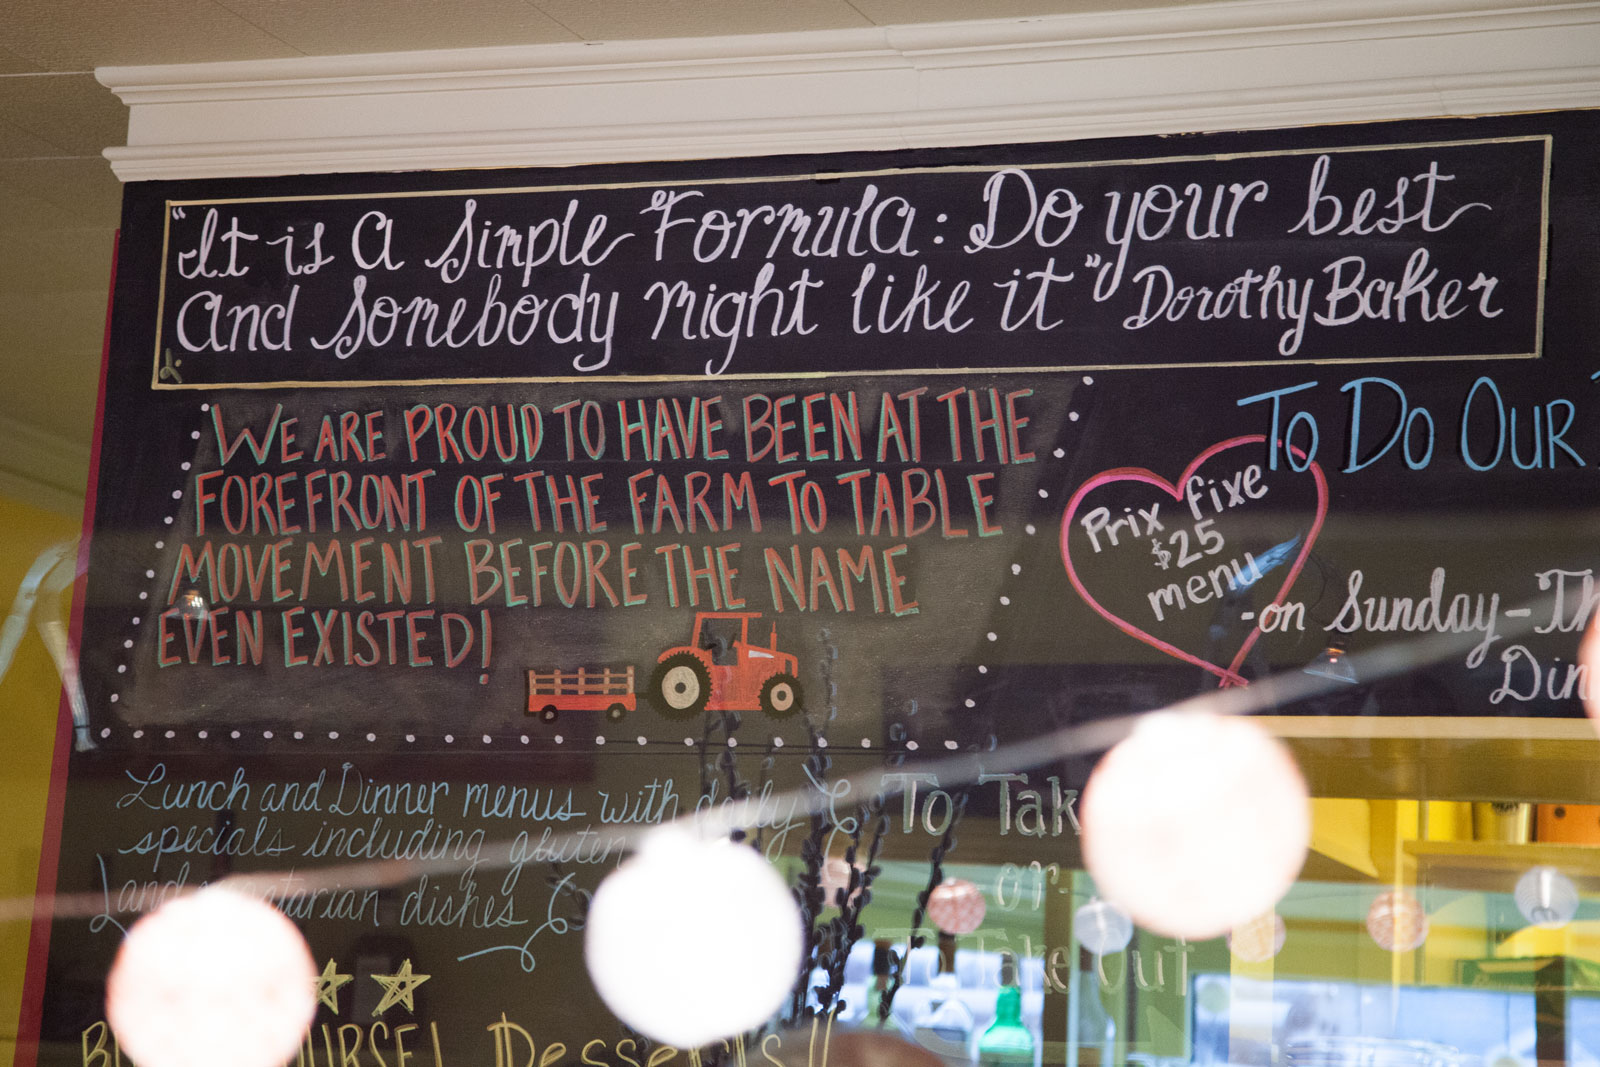 "It is A Simple Formula: Do your best
And Somebody might like it" Dorothy Baker
WE ARE PROUD TO HAVE BEEN AT THE
FOREFRONT OF THE FARM TO TABLE
MOVEMENT BEFORE THE NAME
EVEN EXISTED!
TO DO OUR
Prix fixe
$25
menu
-on Sunday-Th
Din
Lunch and Dinner menus with daily
specials including gluten
and dishes
To Tak
-or-
To Take Out
Desserts!!